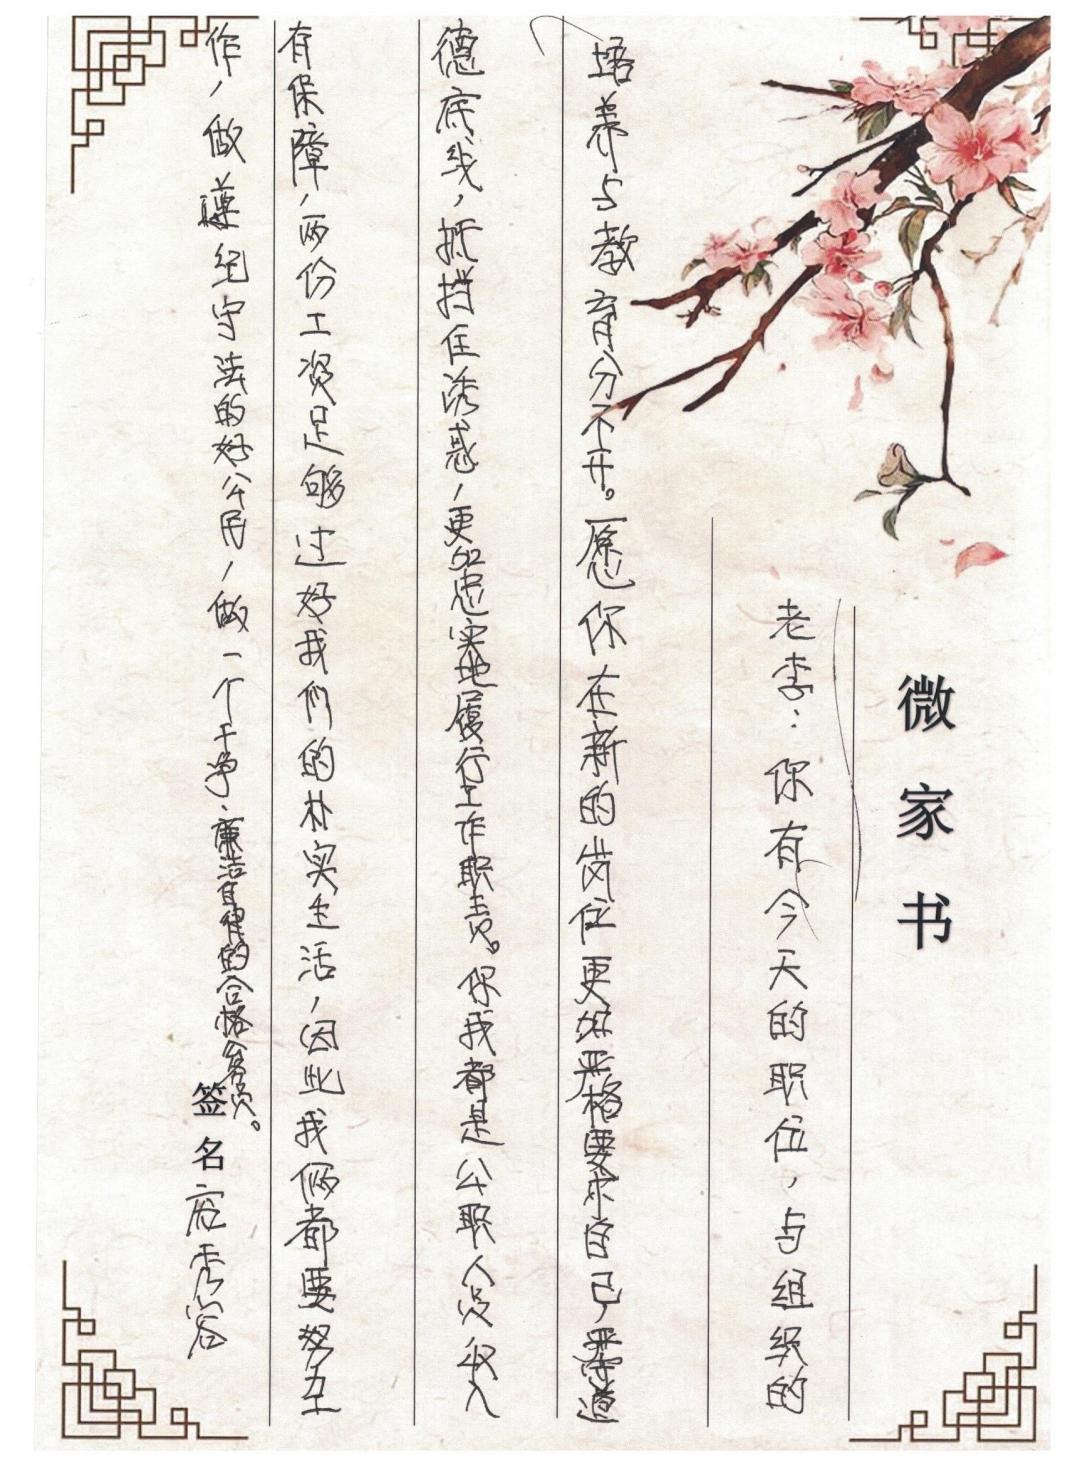 微家书
老李：你有今天的职位，与组织的
培养与教育分不开。愿你在新的岗位更加严格要求自己，严守道
德底线，抵挡住诱惑，更加忠实地履行工作职责。你我都是公职人员收入
有保障，两份工资足够过好我们的朴实生活，因此我俩都要努力工
作，做遵纪守法的好公民，做一个干净、廉洁自律的合格党员。
签名 秀容